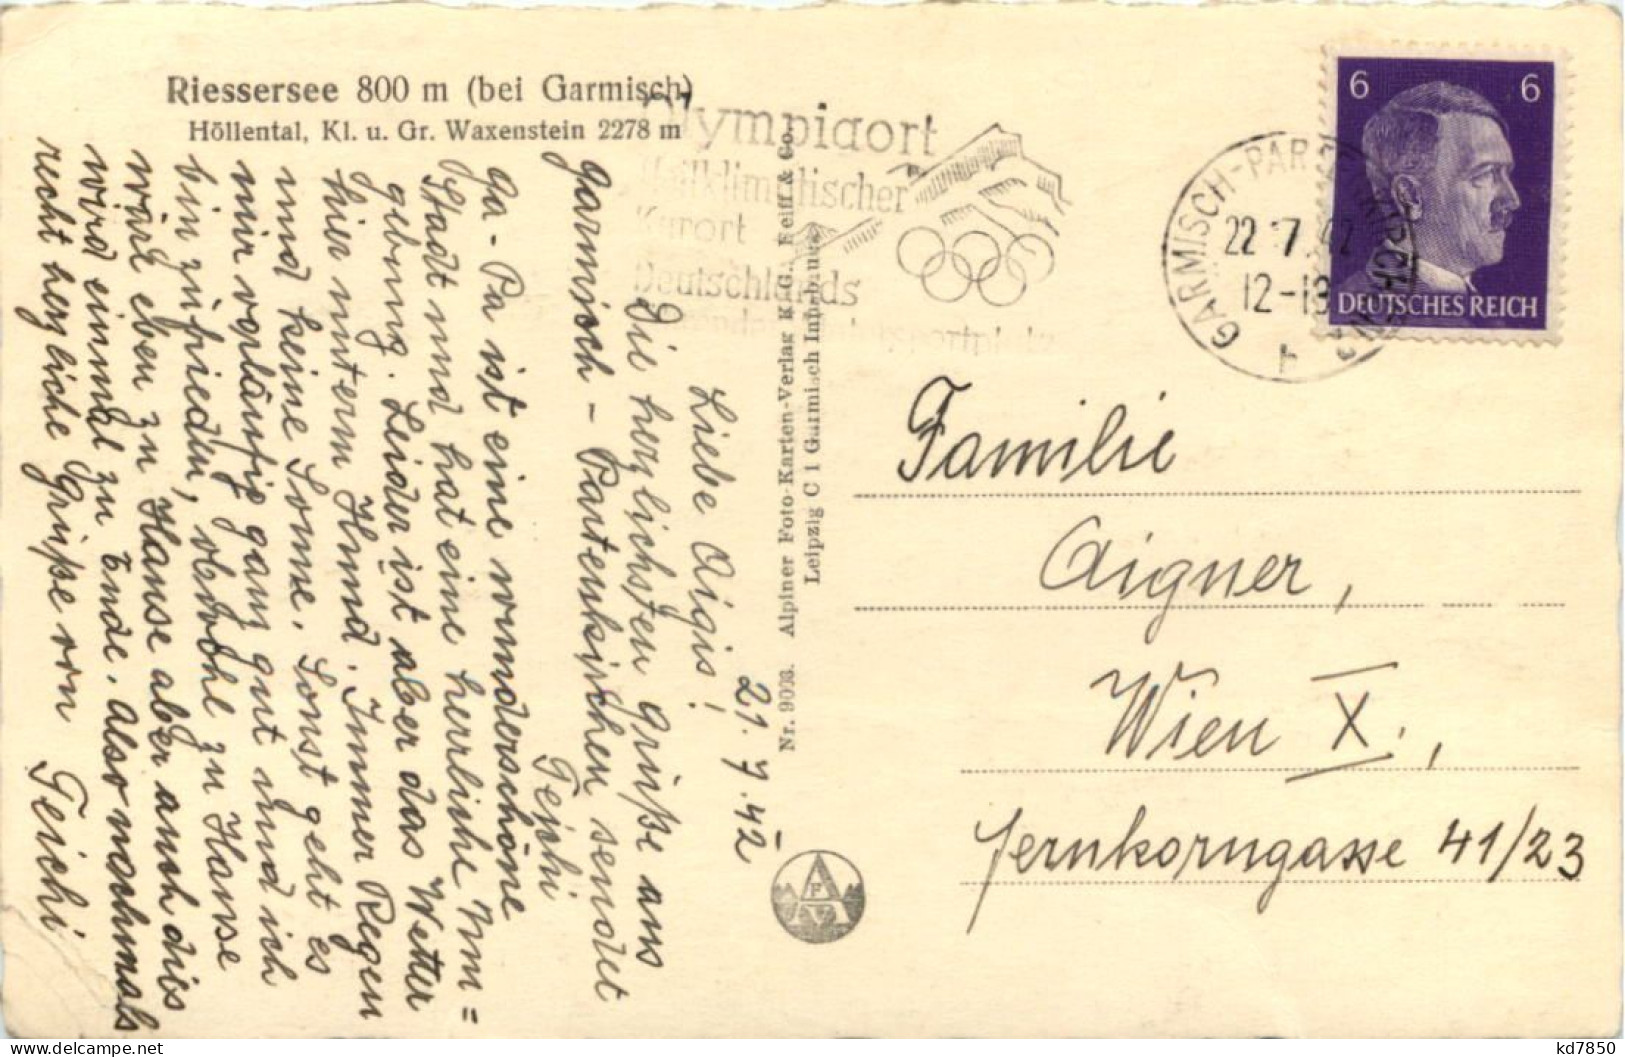 Riessersee 800 m (bei Garmisch)
Höllental, Kl. u. Gr. Waxenstein 2278 m
Olympiaort
Heilklimatischer
Kurort
Deutschlands
6 6
DEUTSCHES REICH
GARMISCH-PARTENKIRCHEN
22.7.42
12-13
b
21.7.42
Liebe Aigis!
Die herzlichsten Grüße aus
Garmisch - Partenkirchen sendet
Teichi
Ga-Pa ist eine wunderschöne
Stadt und hat eine herrliche Um=
gebung. Leider ist aber das Wetter
hier unterm Hund. Immer Regen
und keine Sonne. Sonst geht es
mir vorläufig ganz gut und ich
bin zufrieden, obwohl zu Hause
wärs eben zu Hause aber auch dies
wird einmal zu Ende. Also nochmals
recht herzliche Grüße von Teichi
Nr. 9003. Alpiner Foto-Karten-Verlag K.G., Reiff & Co.
Leipzig C 1 Garmisch Innsbruck
AFV
Familie
Aigner,
Wien X.,
Fernkorngasse 41/23
kd7850